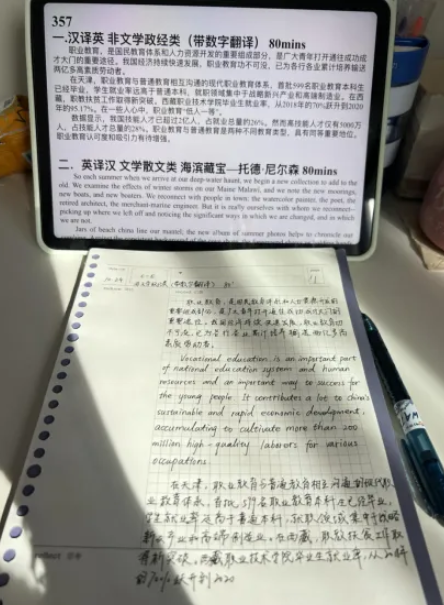 357
一.汉译英 非文学政经类（带数字翻译） 80mins
职业教育，是国民教育体系和人力资源开发的重要组成部分，是广大青年打开通往成功成
才大门的重要途径。我国经济持续快速发展，职业教育功不可没，已为各行各业累计培养输送
两亿多高素质劳动者。
在天津，职业教育与普通教育相互沟通的现代职业教育体系，首批599名职业教育本科生
已经毕业，学生就业率远高于普通本科，就职领域集中于战略新兴产业和高端制造业。在西
藏，职教扶贫工作取得新突破，西藏职业技术学院毕业生就业率，从2018年的70%跃升到2020
年的95.17%。在一些人心中，职业教育“低人一等”。
数据显示，我国技能人才已超过2亿人，占就业总量的26%。然而高技能人才仅有5000万
人，占技能人才总量的28%，职业教育与普通教育是两种不同教育类型，具有同等重要地位。
职业教育认可度和吸引力有待增强。
二. 英译汉 文学散文类 海滨藏宝—托德·尼尔森 80mins
So each summer when we arrive at our deep-water haunt, we begin a new collection to add to the
old. We examine the effects of winter storms on our Maine Malecon, and we note the new moorings,
new boats, and new boaters. We reconnect with people in town: the watercolor painter, the poet, the
retired architect, the merchant-marine engineer. But it is really ourselves with whom we reconnect—
picking up where we left off and noticing the significant ways in which we are changed, and in which
we are not.
Jars of beach china line our mantel; the new album of summer photos helps to chronicle our
职业教育，是国民教育体系和人力资源开发的
重要组成部分，是广大青年打开通往成功成才大门的
重要途径。我国经济持续快速发展，职业教育功
不可没，已为各行各业累计培养输送两亿多高
素质劳动者。
Vocational education is an important part
of national education system and human
resources and an important way to success for
the young people. It contributes a lot to China's
sustainable and rapid economic development,
accumulating to cultivate more than 200
million high-quality laborers for various
occupations.
在天津，职业教育与普通教育相互沟通的现代职
业教育体系，首批599名职业教育本科生已经毕业，
学生就业率远高于普通本科，就职领域集中于战略
新兴产业和高端制造业。在西藏，职教扶贫工作取
得新突破，西藏职业技术学院毕业生就业率，从2018年
的70%跃升到2020